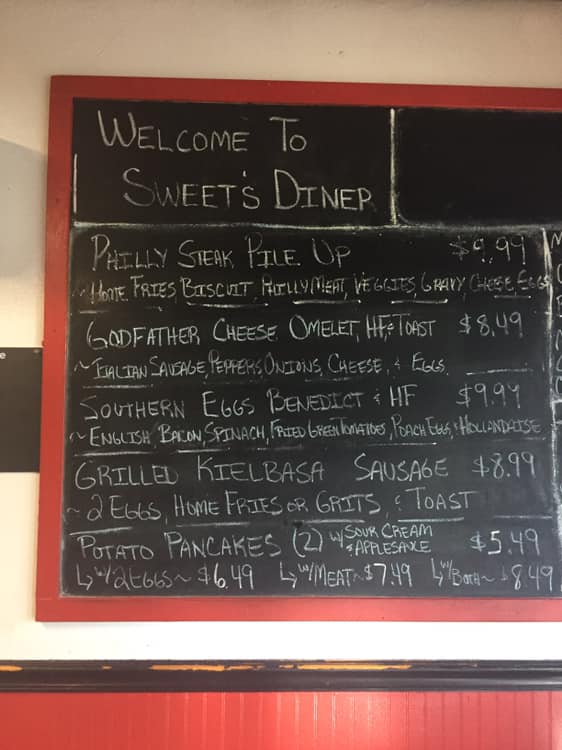 WELCOME TO
SWEET'S DINER
PHILLY STEAK PILE UP $9.99
~HOME FRIES, BISCUIT, PHILLY MEAT, VEGGIES, GRAVY, CHEESE, EGGS
GODFATHER CHEESE OMELET, HF & TOAST $8.49
~ITALIAN SAUSAGE, PEPPERS, ONIONS, CHEESE, & EGGS
SOUTHERN EGGS BENEDICT & HF $9.99
~ENGLISH BACON, SPINACH, FRIED GREEN TOMATOES, POACH EGG, & HOLLANDAISE
GRILLED KIELBASA SAUSAGE $8.99
~2 EGGS, HOME FRIES OR GRITS, & TOAST
POTATO PANCAKES (2) W/ SOUR CREAM & APPLESAUCE $5.49
↳ W/ 2 EGGS ~ $6.49 ↳ W/ MEAT ~ $7.49 ↳ W/ BOTH ~ $8.49